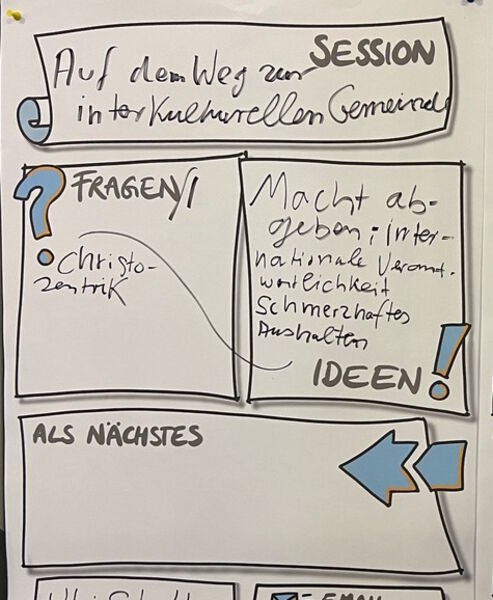 SESSION
Auf dem Weg zur
interkulturellen Gemeinde
FRAGEN/
Christo-
zentrik
Macht ab-
geben; inter-
nationale Verant.
wortlichkeit
Schmerzhaftes
Aushalten
IDEEN
ALS NÄCHSTES